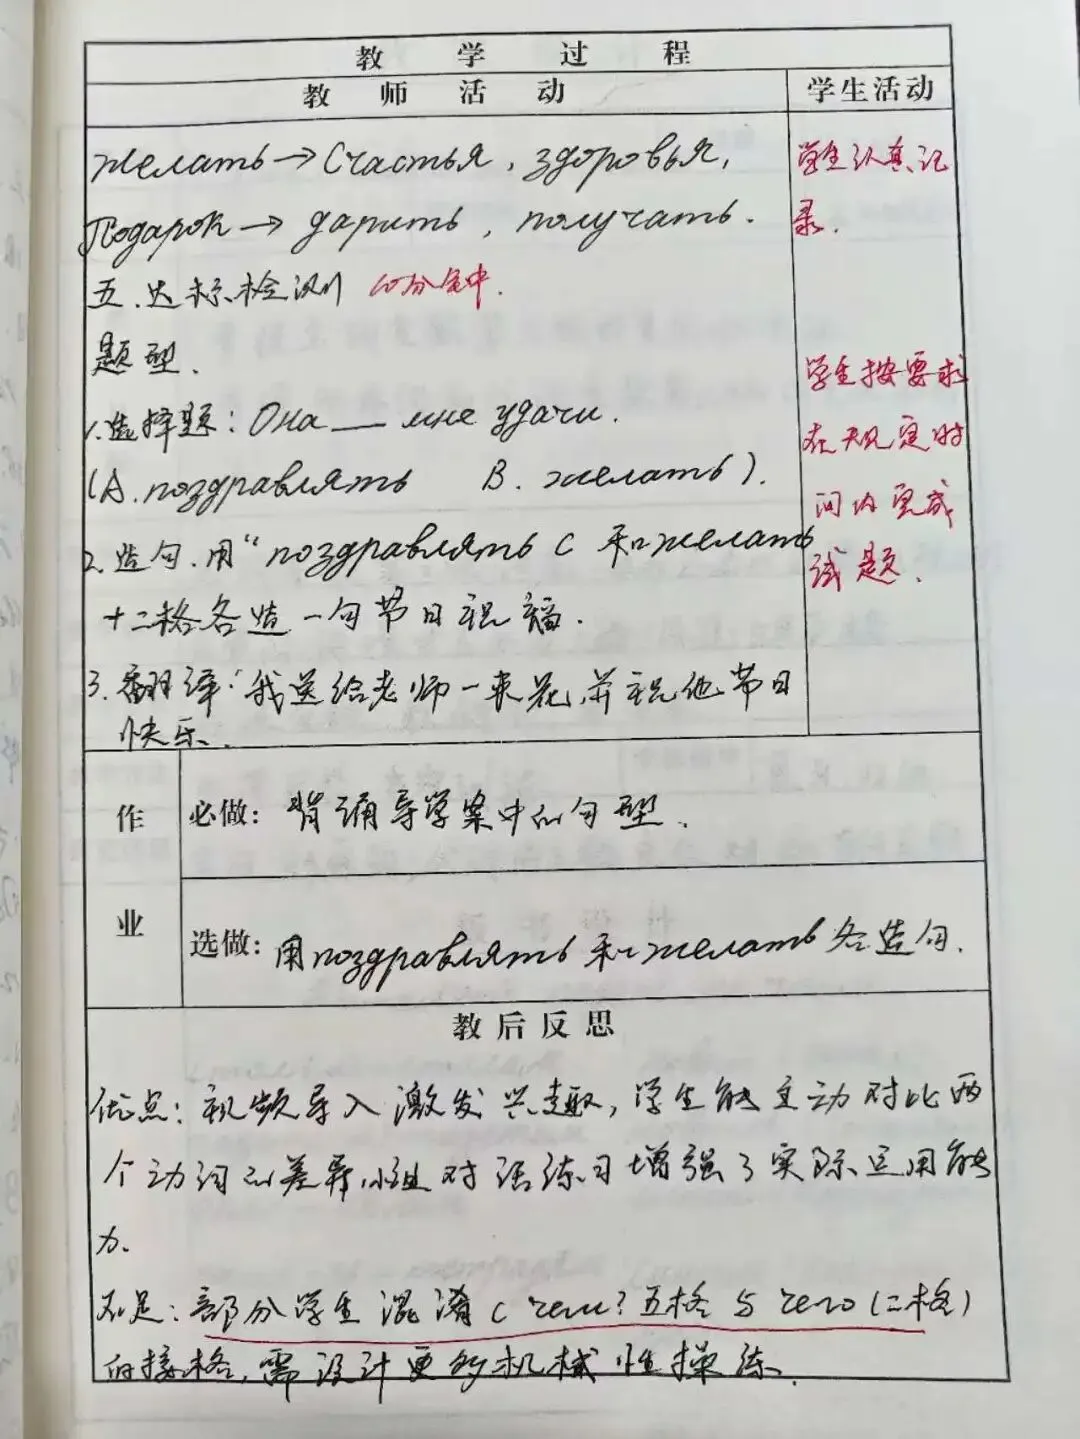 教 学 过 程
教 师 活 动
学生活动
желать → счастья, здоровья,
подарок → дарить, получать.
五.达标检测 10分钟.
题型.
1.选择题: Она __ мне удачи.
(A. поздравлять B. желать).
2.造句.用“поздравлять с 和 желать
+二格各造一句节日祝福.
3.翻译:我送给老师一束花,并祝他节日
快乐.
学生认真记
录.
学生按要求
在规定时
间内完成
试题.
作
业
必做: 背诵导学案中的句型.
选做: 用поздравлять 和желать各造句.
教后反思
优点: 视频导入激发兴趣,学生能主动对比两
个动词的差异,小组对话练习增强了实际运用能
力.
不足: 部分学生混淆 с чем? 五格 与 чего (二格)
的接格,需设计更多机械性操练.